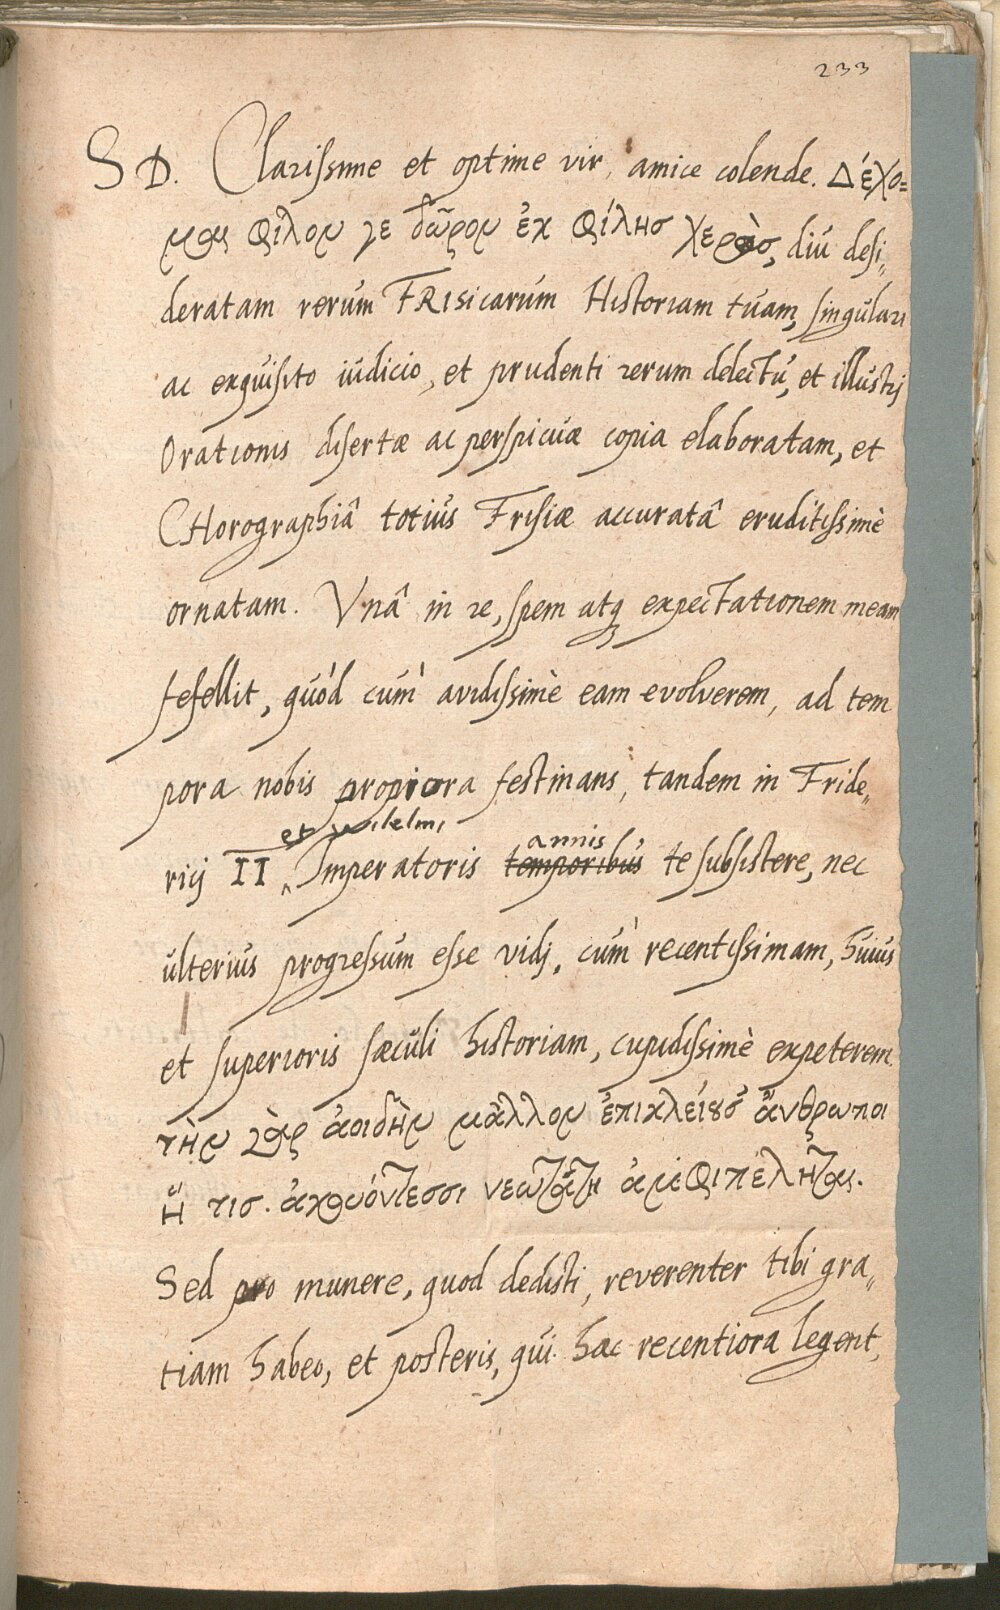 233
S D. Clarissime et optime vir, amice colende. Δέχο=
μαι φίλον γε δῶρον ἐκ φίλης χερὸς, diú desi„
deratam rerúm FRIsicarúm HIstoriam túam, singulari
ac exquisito iúdicio, et prudenti rerum delectú, et illustrj
Orationis disertæ ac perspicuæ copia elaboratam, et
CHorographiâ totiús Frisiæ accuratâ eruditissimè
ornatam. Vnâ in re, spem atq expectationem meam
fefellit, quòd cùm avidissimè eam evolverem, ad tem
pora nobis propiora festinans, tandem in Fride„
et Wilelmi annis
rici II Imperatoris temporibús te subsistere, nec
ulteriús progressum esse vidj, cùm recentissimam, húiús
et superioris sæcúli historiam, cupidissimè expeterem.
τὴν γὰρ ἀοιδὴν μᾶλλον ἐπικλείουσ' ἄνθρωποι
ἥ τις ἀκουόντεσσι νεωτάτη ἀμφιπέληται.
Sed pro munere, quod dedisti, reverenter tibi gra„
tiam habeo, et posteris, qui hæc recentiora legent,